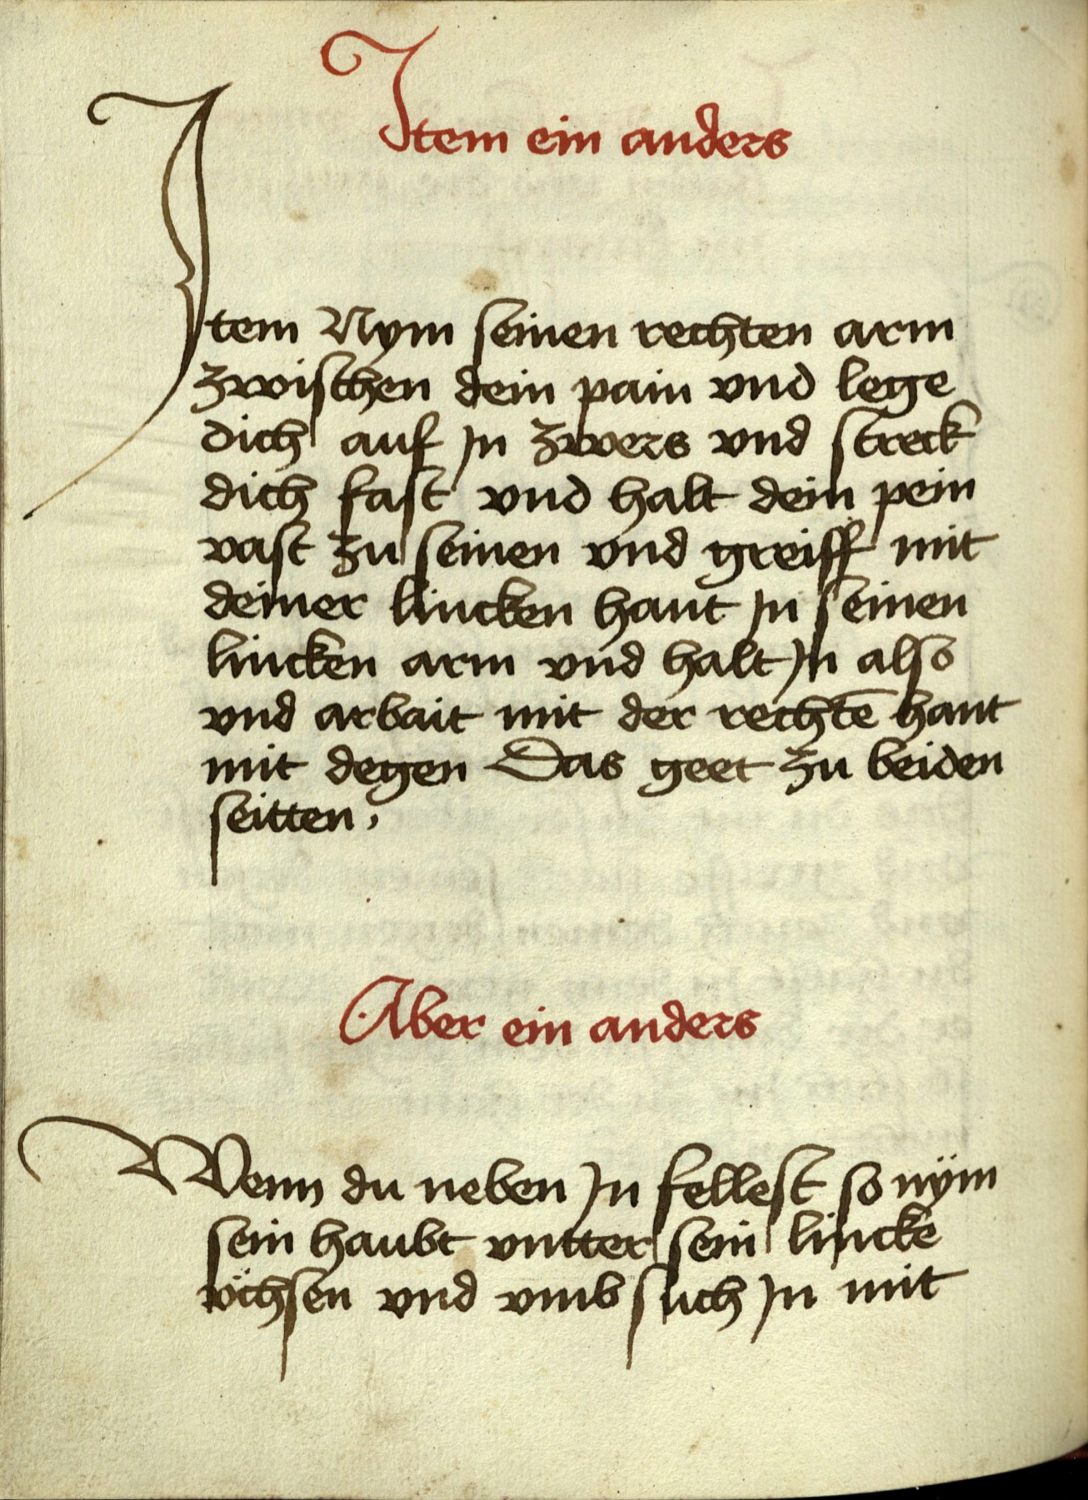 Item ein anders
Item Nym seinen rechten arm
zwischen dein pain vnd lege
dich auf jn zwers vnd streck
dich fast vnd halt dein pein
vast zu seinen vnd greiff mit
deiner lincken hant jn seinen
lincken arm vnd halt jn also
vnd arbait mit der rechtē hant
mit degen Das geet zu beiden
seitten,
Aber ein anders
Wenn du neben jn fellest so nÿm
sein haubt vntter sein lincke
vchsen vnd vmb such jn mit